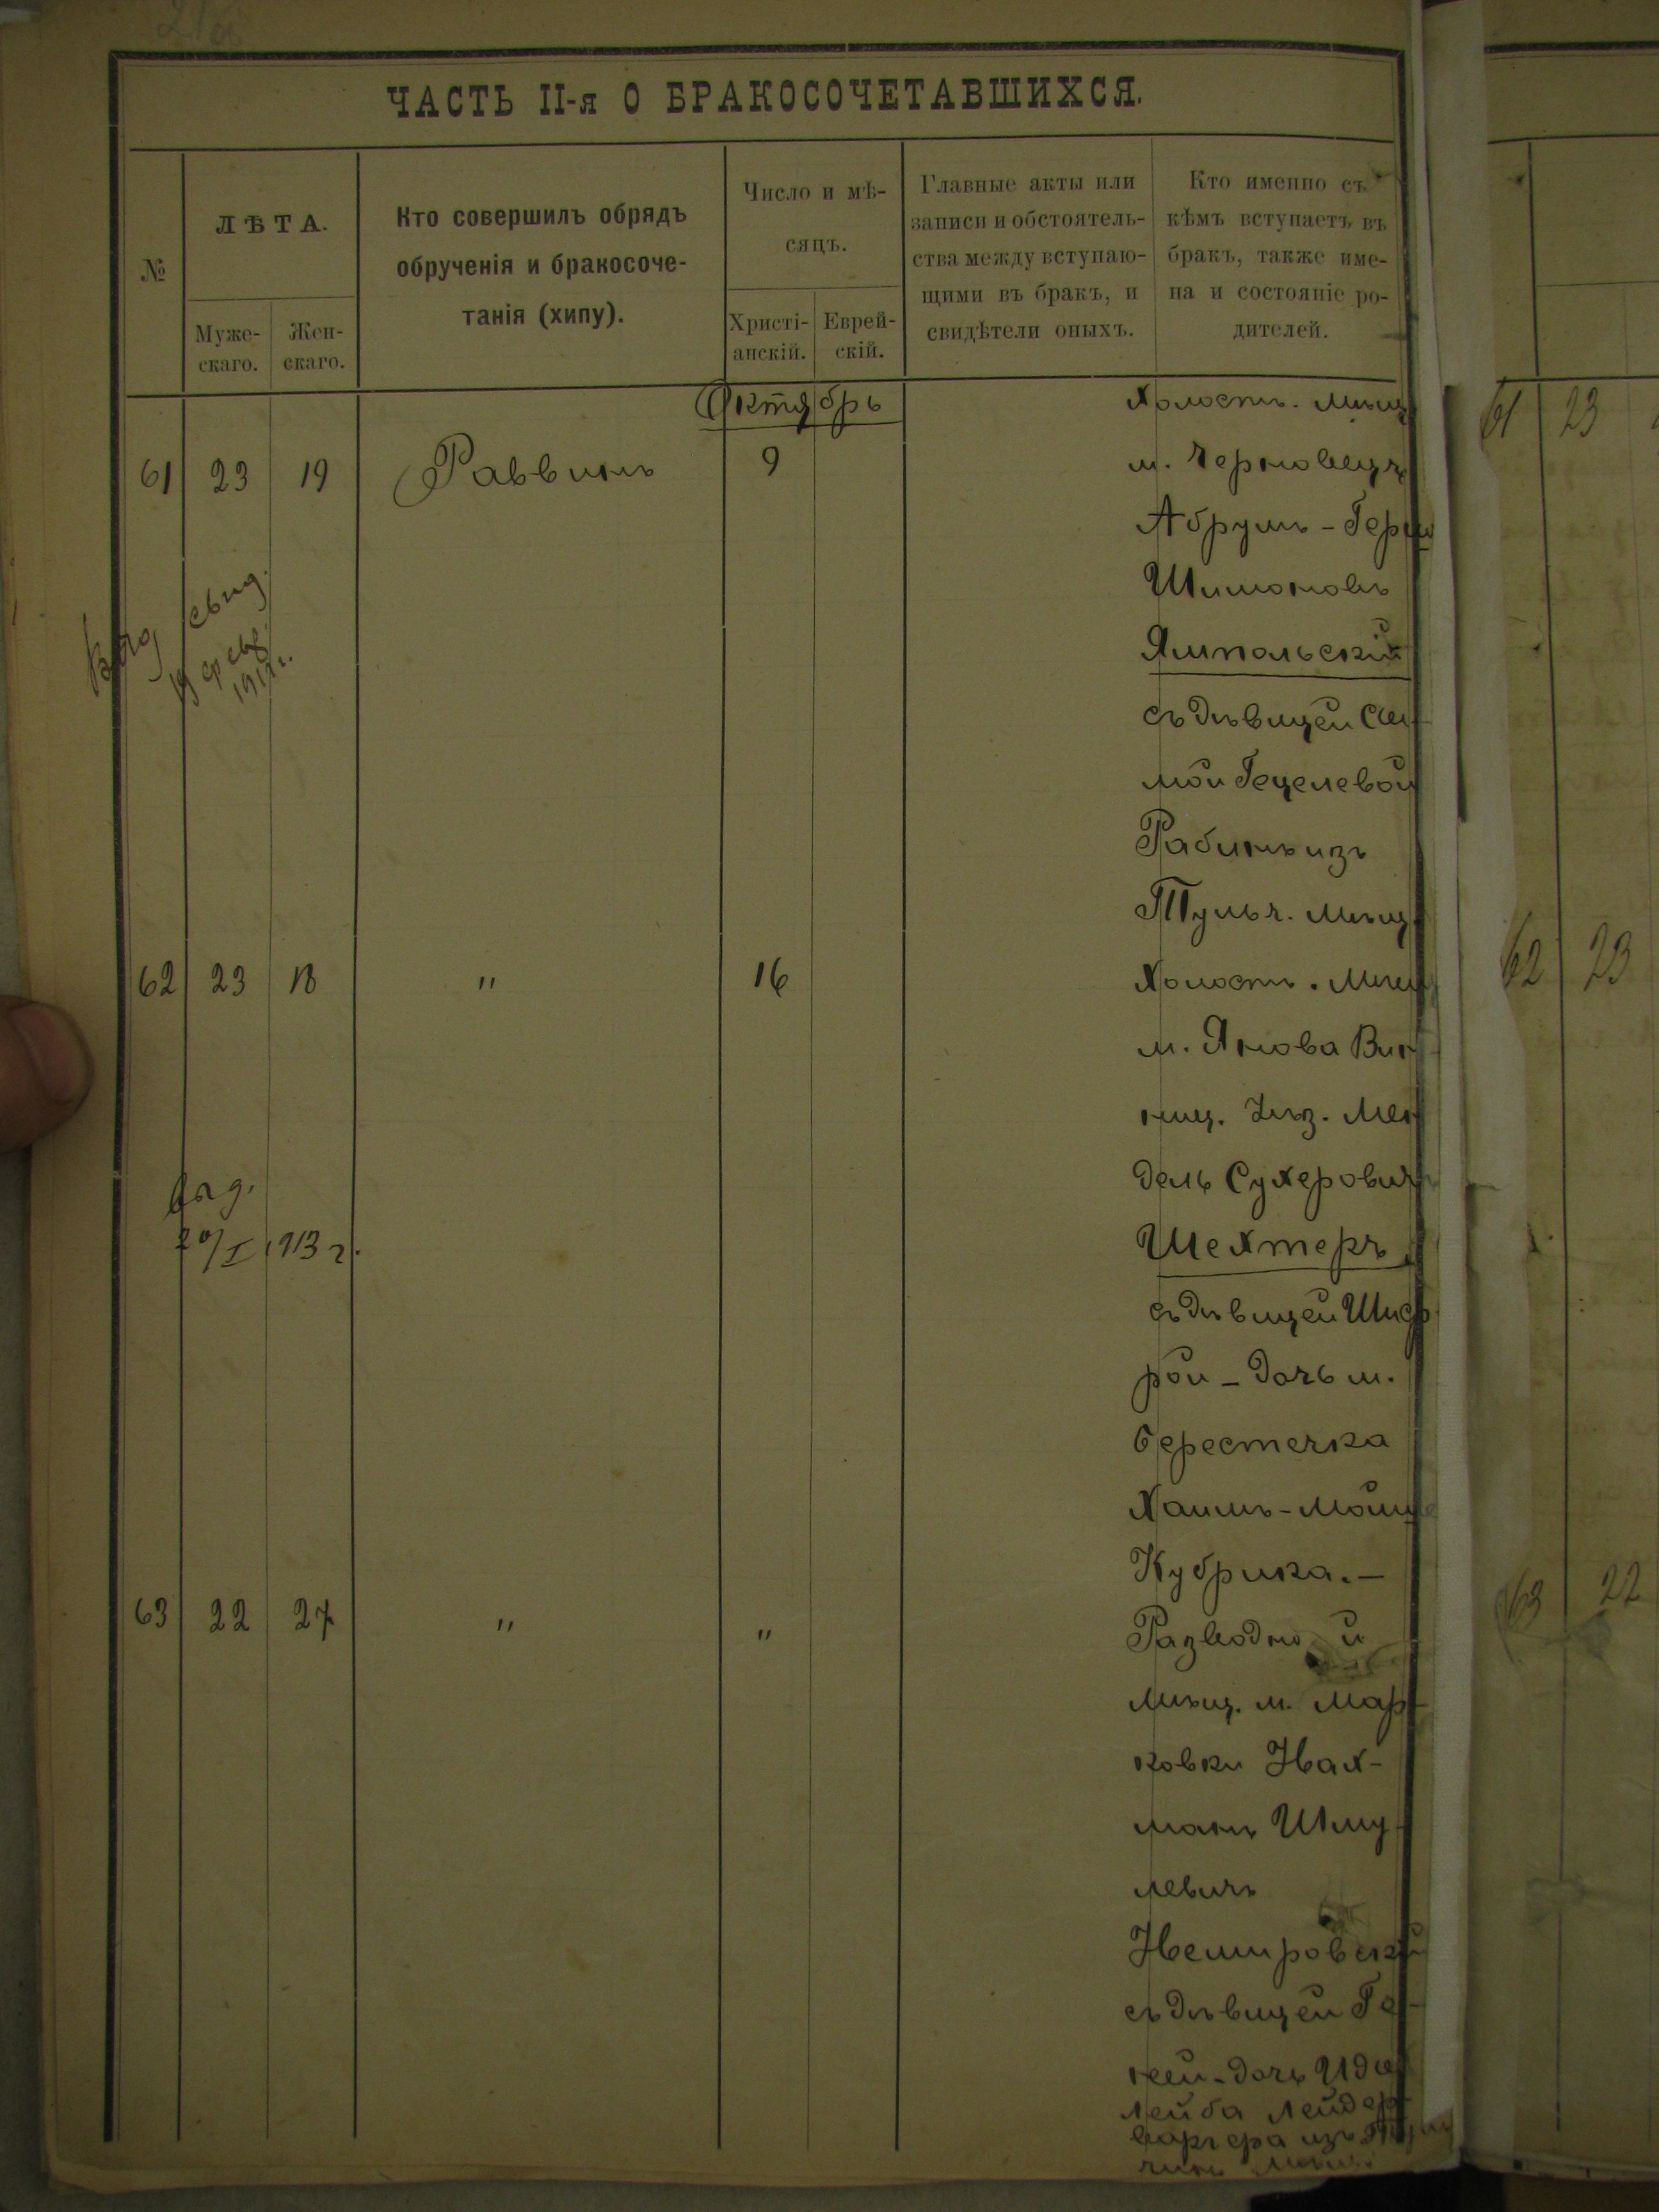 ЧАСТЬ II-я О БРАКОСОЧЕТАВШИХСЯ.
№
ЛѢТА.
Муже-
скаго.
Жен-
скаго.
Кто совершилъ обрядъ
обрученія и бракосоче-
танія (хипу).
Число и мѣ-
сяцъ.
Христі-
анскій.
Еврей-
скій.
Главные акты или
записи и обстоятель-
ства между вступаю-
щими въ бракъ, и
свидѣтели оныхъ.
Кто именно съ
кѣмъ вступаетъ въ
бракъ, также име-
на и состояніе ро-
дителей.
Октябрь
61 23 19 Раввинъ 9
Холостъ. мѣщ
м. Черновецъ
Абрумъ - Герш
Шимоновъ
Ямпольскій
съ дѣвицей Сы
мой Гецелевой
Рабинъ изъ
Тульч. мѣщ
62 23 18 " 16
Холостъ. Мѣщ
м. Янова Вин
ниц. Уѣз. Мен
дель Сухеровичъ
Шехтеръ
съ дѣвицей Шиф
рой - дочь м.
берестечка
Хаимъ-Мошк
Кубрика. -
63 22 27 " "
Разводно й
мѣщ. м. Мар
ковки Нах-
манъ Шму
левичъ
Немировскій
съ дѣвицей Ге
ней - дочь Иде
Лейба Лейдер
варгера изъ
чинъ мѣщ.
выд свид.
выд.
20/I 1913 г.
61 23
62 23
63 22